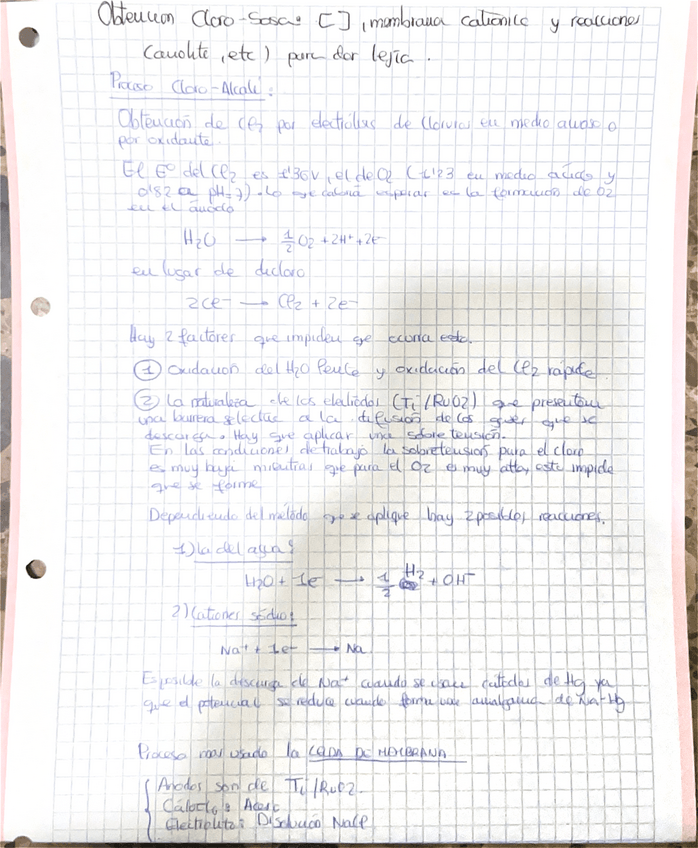 Obtencion Cloro-Sosa: [ ], membrana cationica y reacciones
(anolito, etc) para dar lejía.
Proceso Cloro-Alcali:
Obtención de Cl2 por electrólisis de cloruros en medio acuoso o
por oxidante.
El Eº del Cl2 es 1'36V, el de O2 (1'23 en medio ácido y
0'82 a pH=7). Lo que cabría esperar es la formación de O2
en el ánodo
H2O ⟶ 1/2 O2 + 2H+ + 2e-
en lugar de dicloro
2Cl- ⟶ Cl2 + 2e-
Hay 2 factores que impiden que ocurra esto.
① Oxidacion del H2O lenta y oxidación del Cl2 rápida.
② La naturaleza de los electrodos (Ti/RuO2) que presentan
una barrera selectiva a la difusión de los gases que se
descargan. Hay que aplicar una sobretensión.
En las condiciones de trabajo la sobretension para el cloro
es muy baja mientras que para el O2 es muy alta, esto impide
que se forme
Dependiendo del método que se aplique hay 2 posibles reacciones.
1) La del agua:
H2O + 1e- ⟶ 1/2 H2 + OH-
2) Cationes sodio:
Na+ + 1e- ⟶ Na
Es posible la descarga de Na+ cuando se usan catodos de Hg ya
que el potencial se reduce cuando forma una amalgama de Na-Hg
Proceso mas usado la CELDA DE MEMBRANA
Anodos son de Ti/RuO2.
Cátodos: Acero
Electrolito: Disolución NaCl